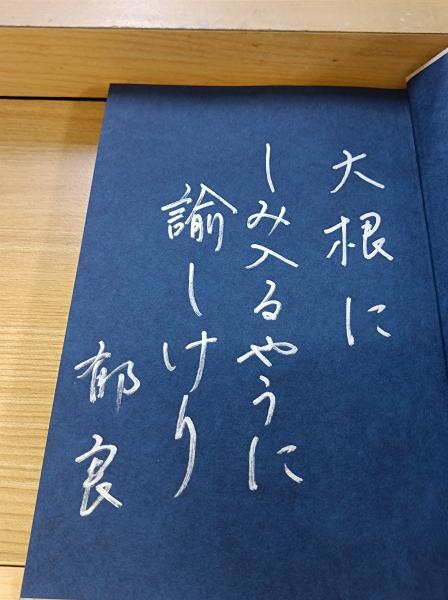 大根に
しみ入るやうに
諭しけり
郁良